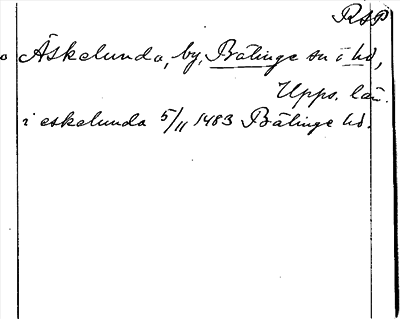 RSP
Äskelunda, by, Bälinge sn i hd,
Upps. län.
i eskelunda 5/11 1483 Bälinge hd.